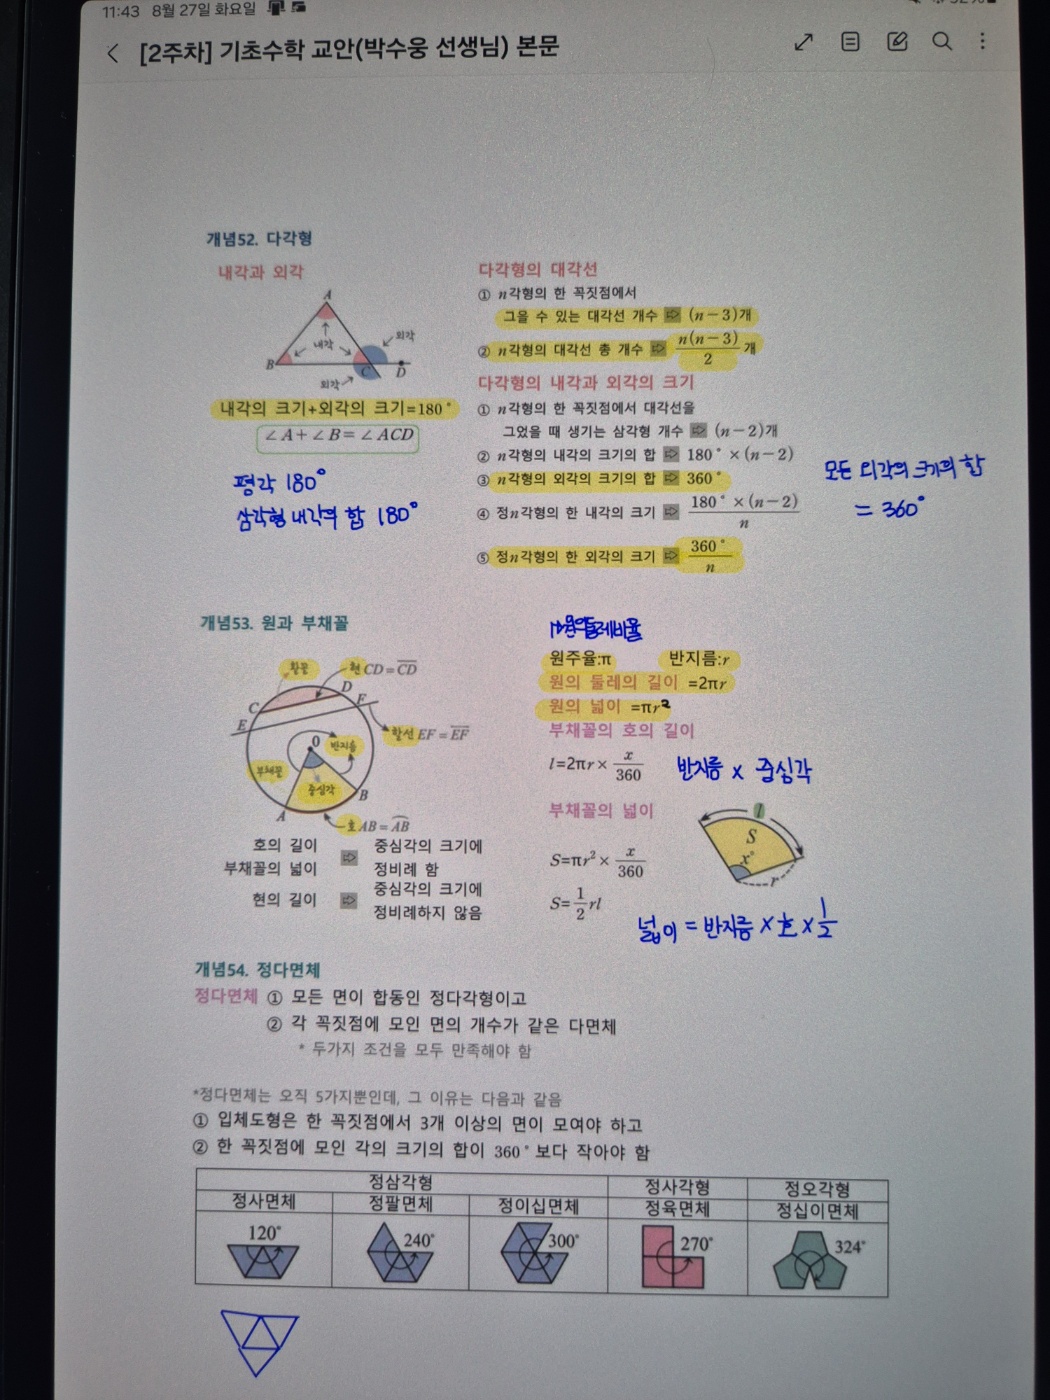 11:43 8월 27일 화요일
[2주차] 기초수학 교안(박수웅 선생님) 본문
개념52. 다각형
내각과 외각
A
내각
외각
B
C
D
외각
내각의 크기+외각의 크기=180°
∠A+∠B=∠ACD
평각 180°
삼각형 내각의 합 180°
다각형의 대각선
① n각형의 한 꼭짓점에서
그을 수 있는 대각선 개수 ⇨ (n-3)개
② n각형의 대각선 총 개수 ⇨ n(n-3)/2 개
다각형의 내각과 외각의 크기
① n각형의 한 꼭짓점에서 대각선을
그었을 때 생기는 삼각형 개수 ⇨ (n-2)개
② n각형의 내각의 크기의 합 ⇨ 180°×(n-2)
③ n각형의 외각의 크기의 합 ⇨ 360°
④ 정n각형의 한 내각의 크기 ⇨ 180°×(n-2)/n
⑤ 정n각형의 한 외각의 크기 ⇨ 360°/n
모든 외각의 크기의 합
= 360°
개념53. 원과 부채꼴
활꼴
현 CD=C̅D̅
C
D
E
F
할선 EF=E̅F̅
O
반지름
부채꼴
중심각
A
B
호 AB=A͡B
호의 길이
부채꼴의 넓이
⇨
중심각의 크기에
정비례 함
현의 길이
⇨
중심각의 크기에
정비례하지 않음
원주율:π 반지름:r
원의 둘레의 길이 =2πr
원의 넓이 =πr²
부채꼴의 호의 길이
l=2πr×x/360
반지름 × 중심각
부채꼴의 넓이
S=πr²×x/360
S=1/2rl
l
S
x°
r
넓이 = 반지름 × 호 × 1/2
개념54. 정다면체
정다면체 ① 모든 면이 합동인 정다각형이고
② 각 꼭짓점에 모인 면의 개수가 같은 다면체
* 두가지 조건을 모두 만족해야 함
*정다면체는 오직 5가지뿐인데, 그 이유는 다음과 같음
① 입체도형은 한 꼭짓점에서 3개 이상의 면이 모여야 하고
② 한 꼭짓점에 모인 각의 크기의 합이 360°보다 작아야 함
정삼각형 정사각형 정오각형
정사면체 정팔면체 정이십면체 정육면체 정십이면체
120° 240° 300° 270° 324°